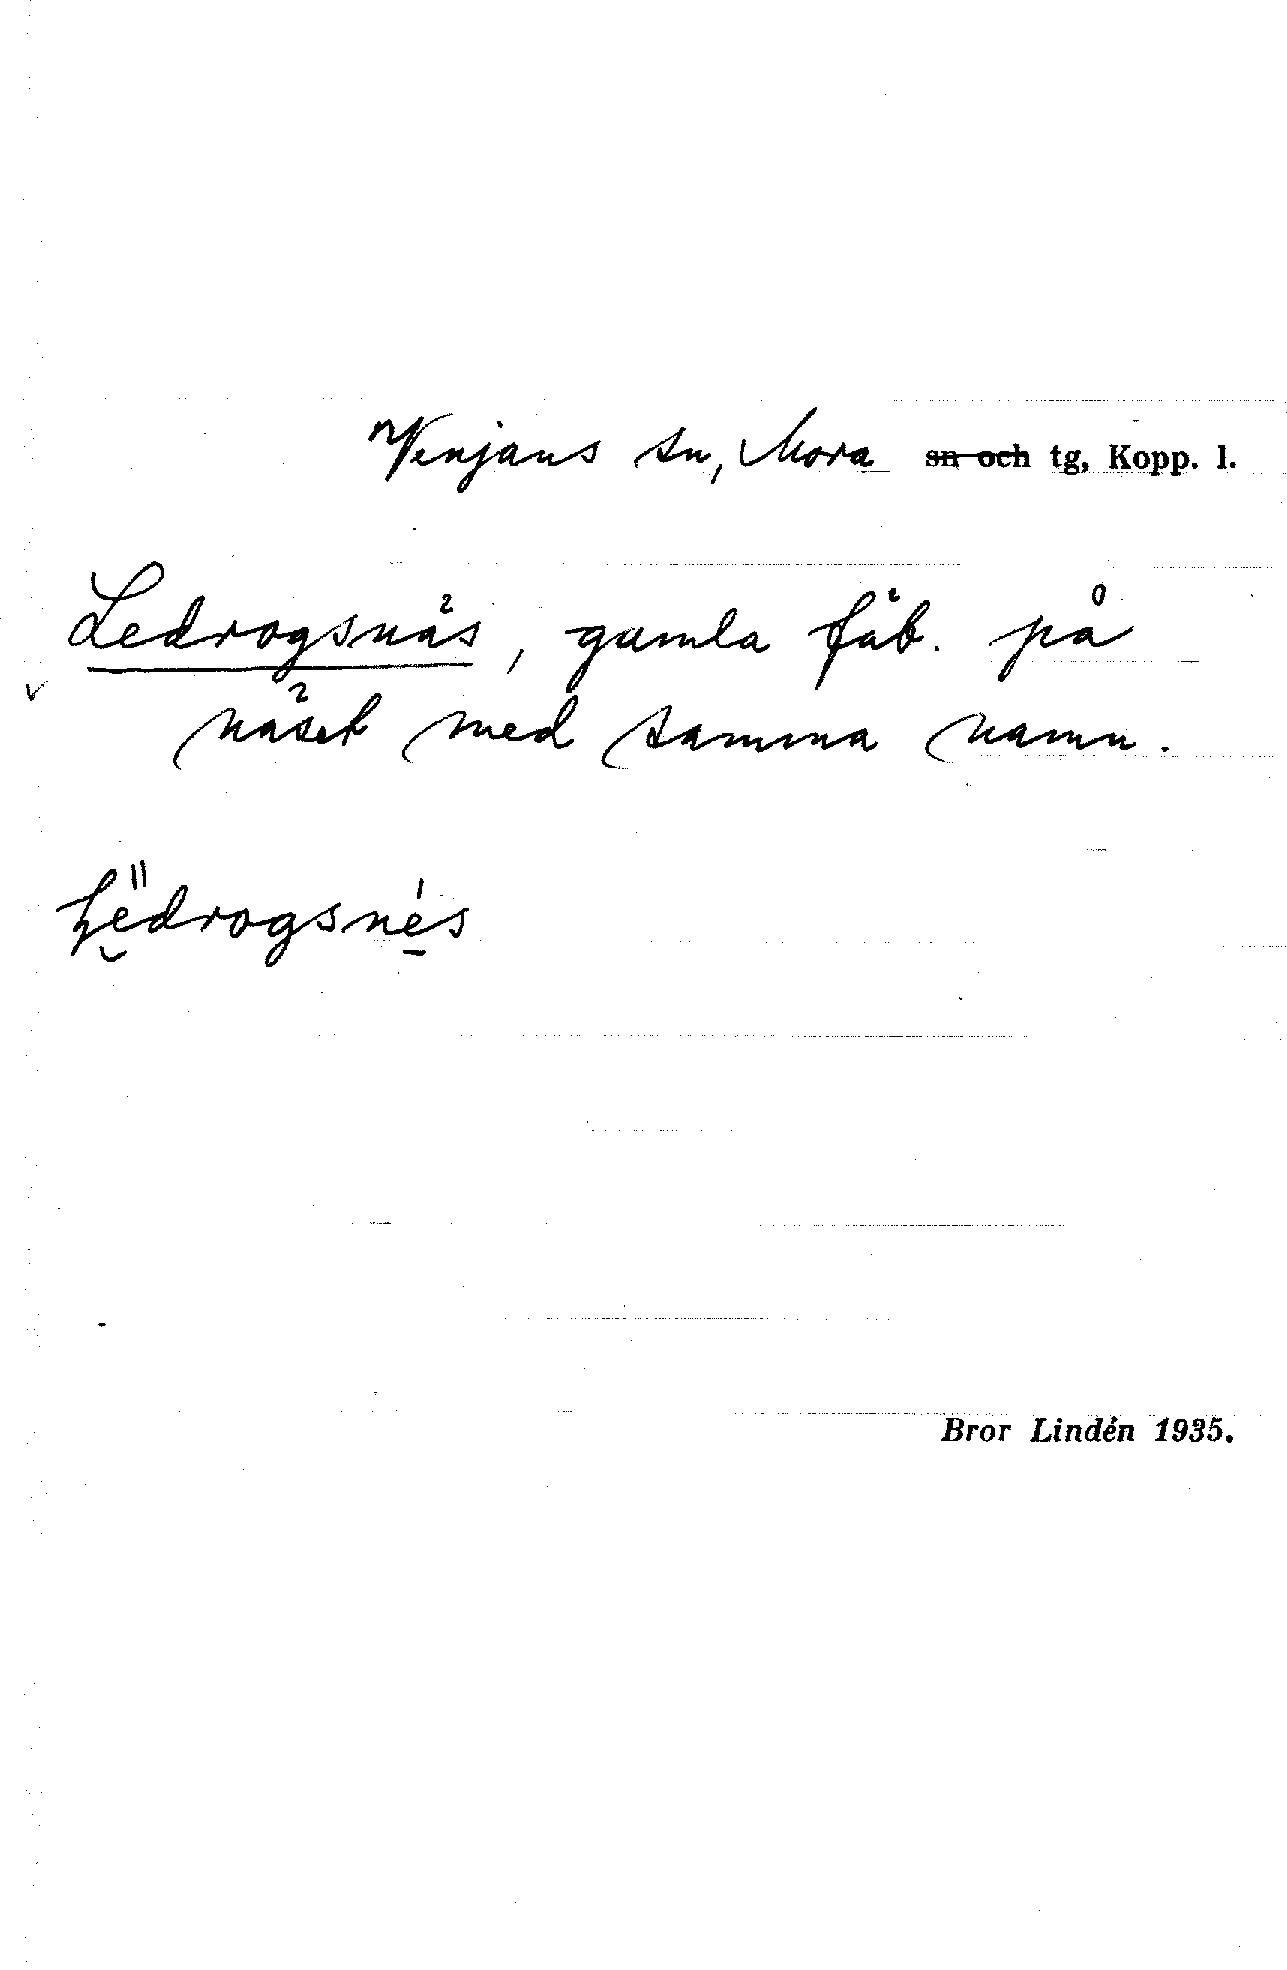 Venjans sn, Mora ~~sn och~~ tg, Kopp. l.
Ledrogsnäs, gamla fäb. på
v
näset med samma namn.
Lë̮drogsné̱s
Bror Lindén 1935.